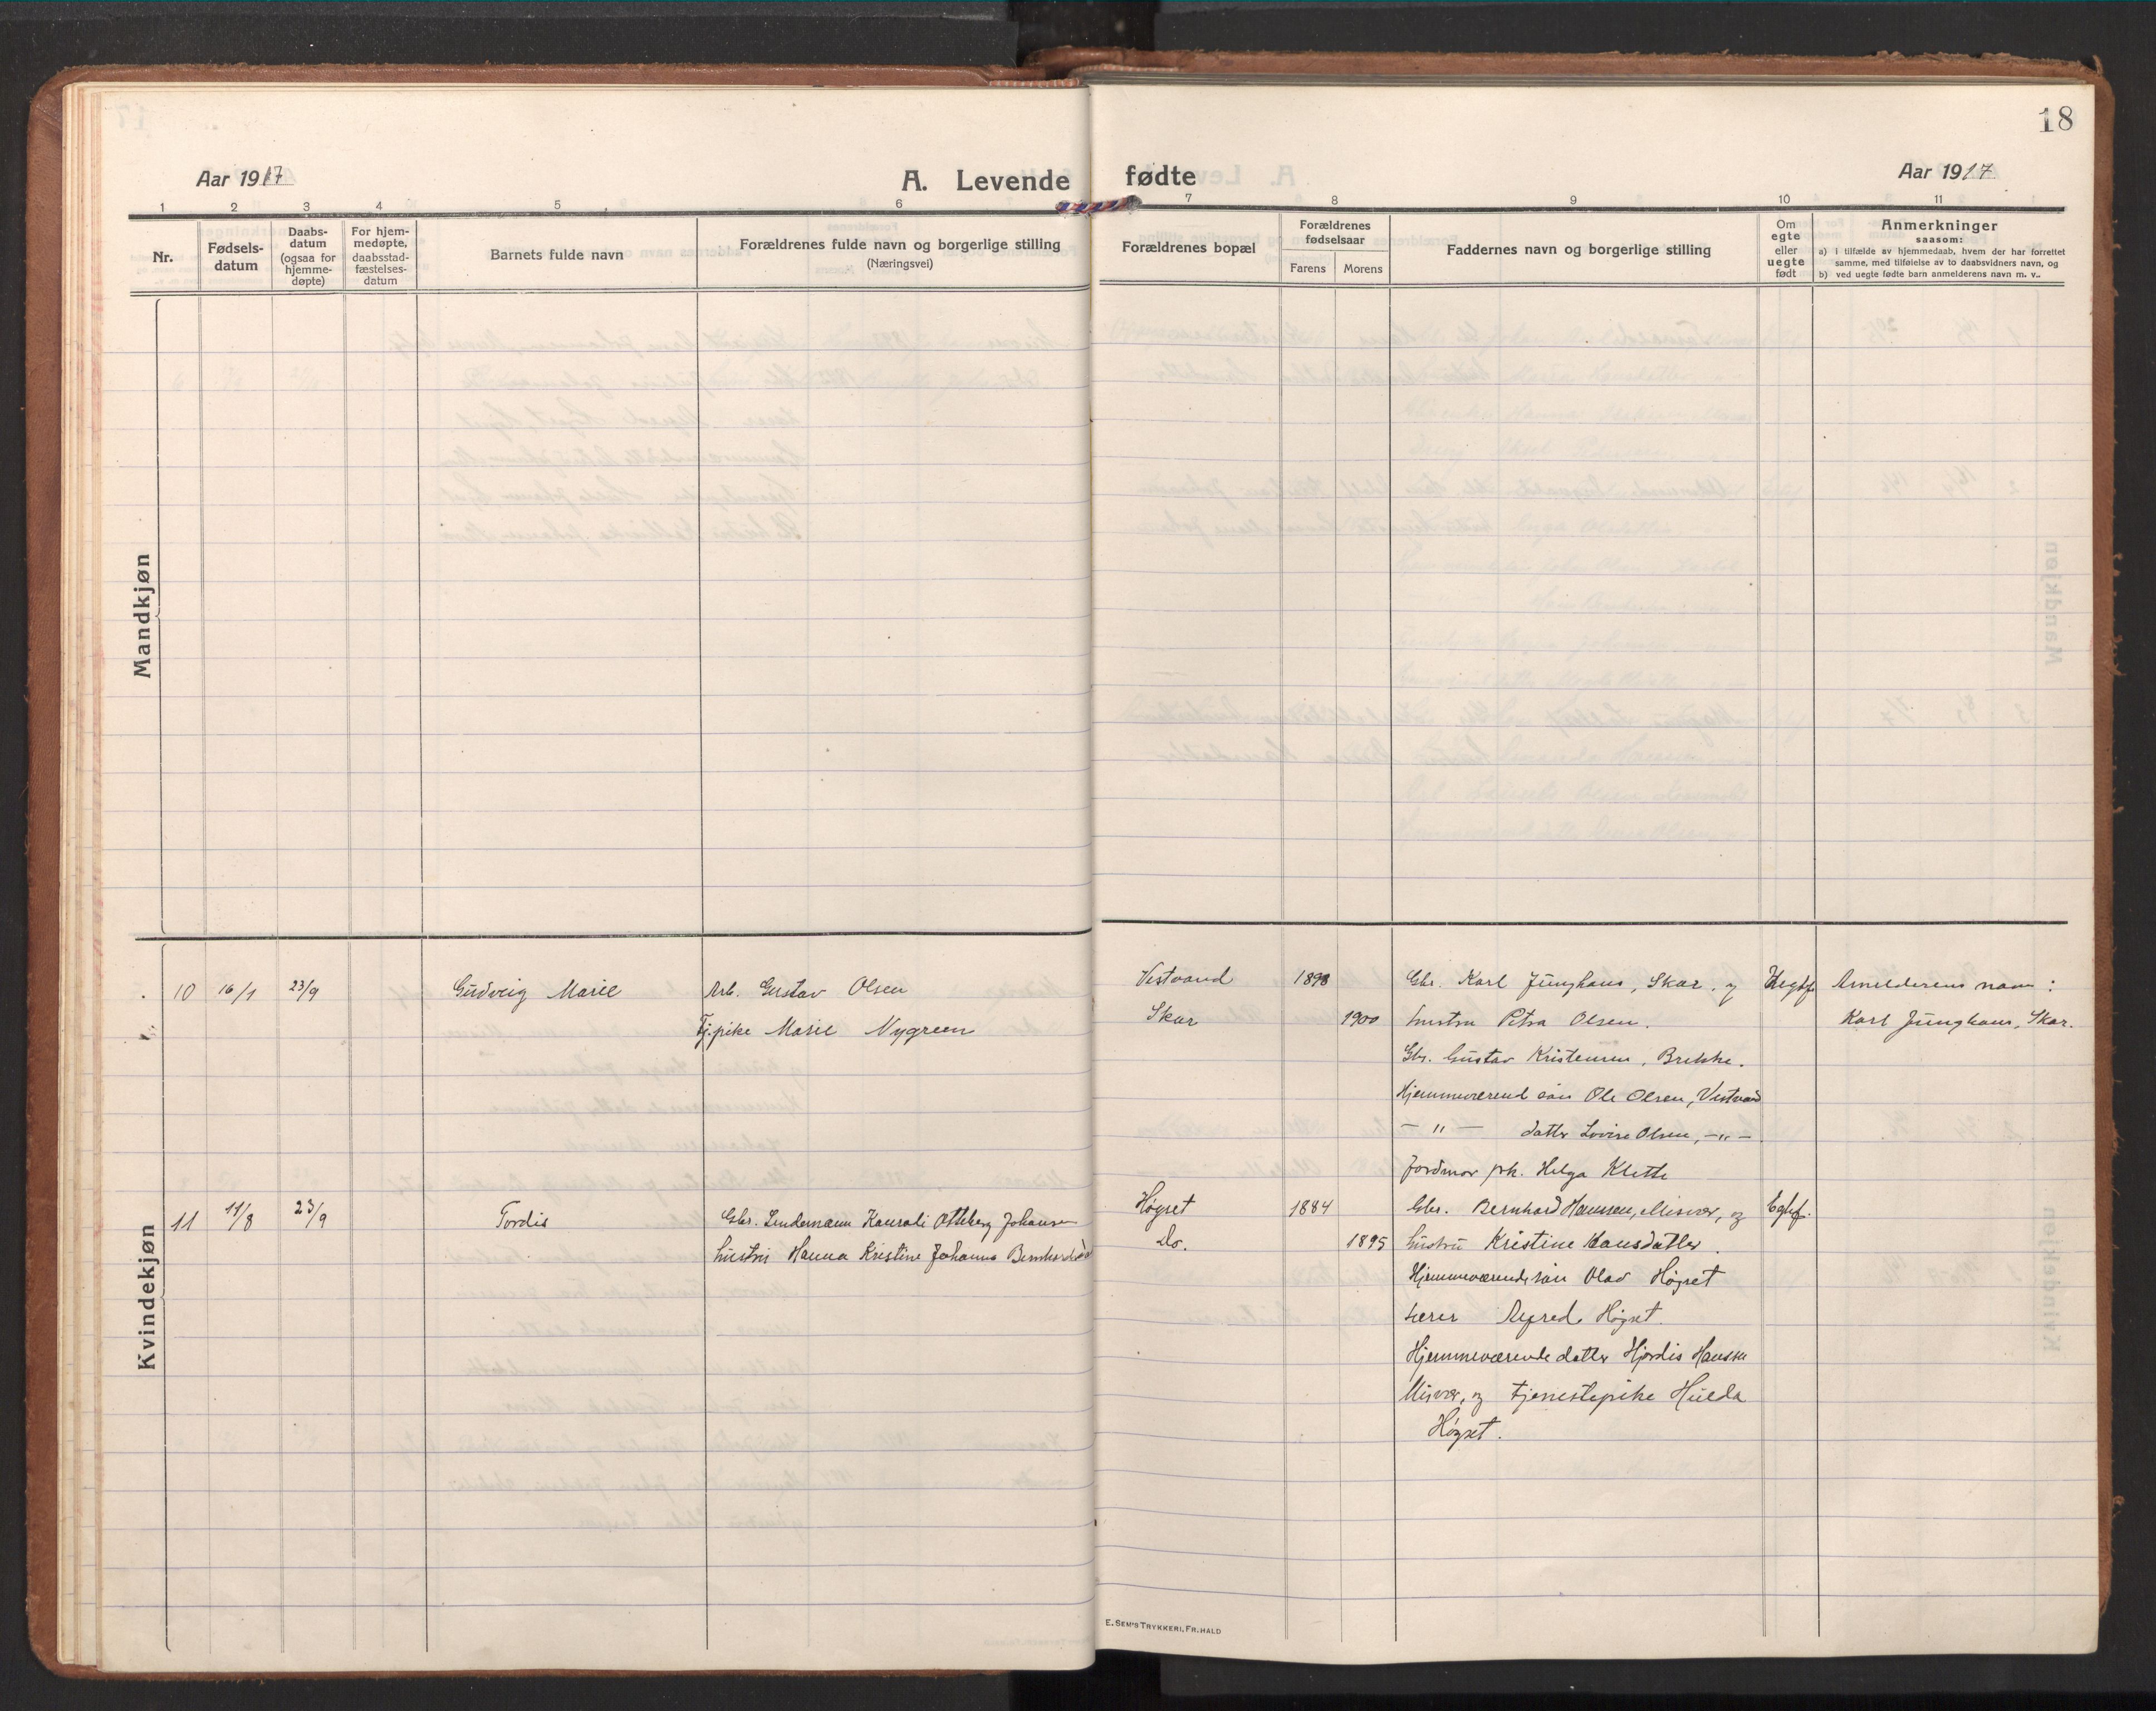 18
Aar 1917
A. Levende fødte
Aar 1917
1 2 3 4 5 6 7 8 9 10 11
Nr.
Fødsels-
datum
Daabs-
datum
(ogsaa for
hjemme-
døpte)
For hjem-
medøpte,
daabsstad-
fæstelses-
datum
Barnets fulde navn
Forældrenes fulde navn og borgerlige stilling
(Næringsvei)
Forældrenes bopæl
Forældrenes
fødselsaar
Farens Morens
Faddernes navn og borgerlige stilling
Om
egte
eller
uegte
født
Anmerkninger
saasom:
a) i tilfælde av hjemmedaab, hvem der har forrettet
samme, med tilføielse av to daabsvidners navn, og
b) ved uegte fødte barn anmelderens navn m. v..
Mandkjøn
Kvindekjøn
10 16/1 23/9 Gudveig Marie Arb. Gustav Olsen Vestvand 1898 Gbr. Karl Junghans, Skar. og Uegtef. Anmelderens navn:
Tj.pike Marie Nygreen Skar 1900 hustru Petra Olsen. Karl Junghans, Skar.
Gbr. Gustav Kristensen, Brekke.
Hjemmeværend søn Ole Olsen, Vestvand
— " — datter Lovise Olsen, — " —
Jordmor frk. Helga Klette
11 11/8 23/9 Tordis Gbr. Lindemann Konradi Ottberg Johansen Høgset 1884 Gbr. Bernhard Hansen, Misvær, og Egtef.
hustru Hanna Kristine Johanna Do. 1895 hustru Kristine Hansdatter.
Hjemmeværende søn Olav Høgset
Lærer Alfred Høgset.
Hjemmeværende datter Hjördis Hansen
Misvær, og tjenestepike Hulda
Høgset.
E. SEM'S TRYKKERI, FR.HALD